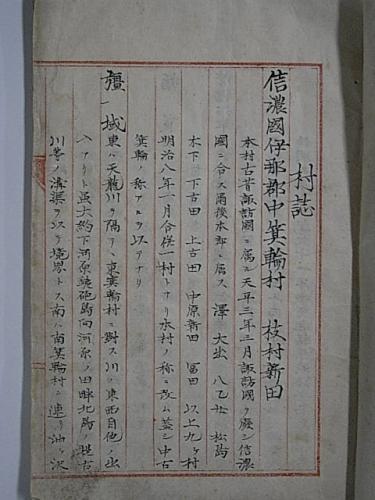 村誌
信濃國伊那郡中箕輪村 枝村新田
本村古昔諏訪國ニ属シ天平三年三月諏訪國ヲ廃シ信濃
國ニ合ス爾後本郡ニ属ス 澤 大出 八乙女 松島
木下 下古田 上古田 中原新田 冨田 以上九ヶ村
明治八年一月合併一村トナリ本村ノ称ニ改ム蓋シ中古
箕輪ノ称アルヲ以テナリ
彊域 東ハ天龍川ヲ隔テ東箕輪村ニ對ス川ノ東西自他ノ出
入アリト虽大約下河原鉄砲島向河原ノ田畔北島ノ堤古
川等ノ溝渠ヲ以テ境界トス南ハ南箕輪村ニ連リ油ヶ沢